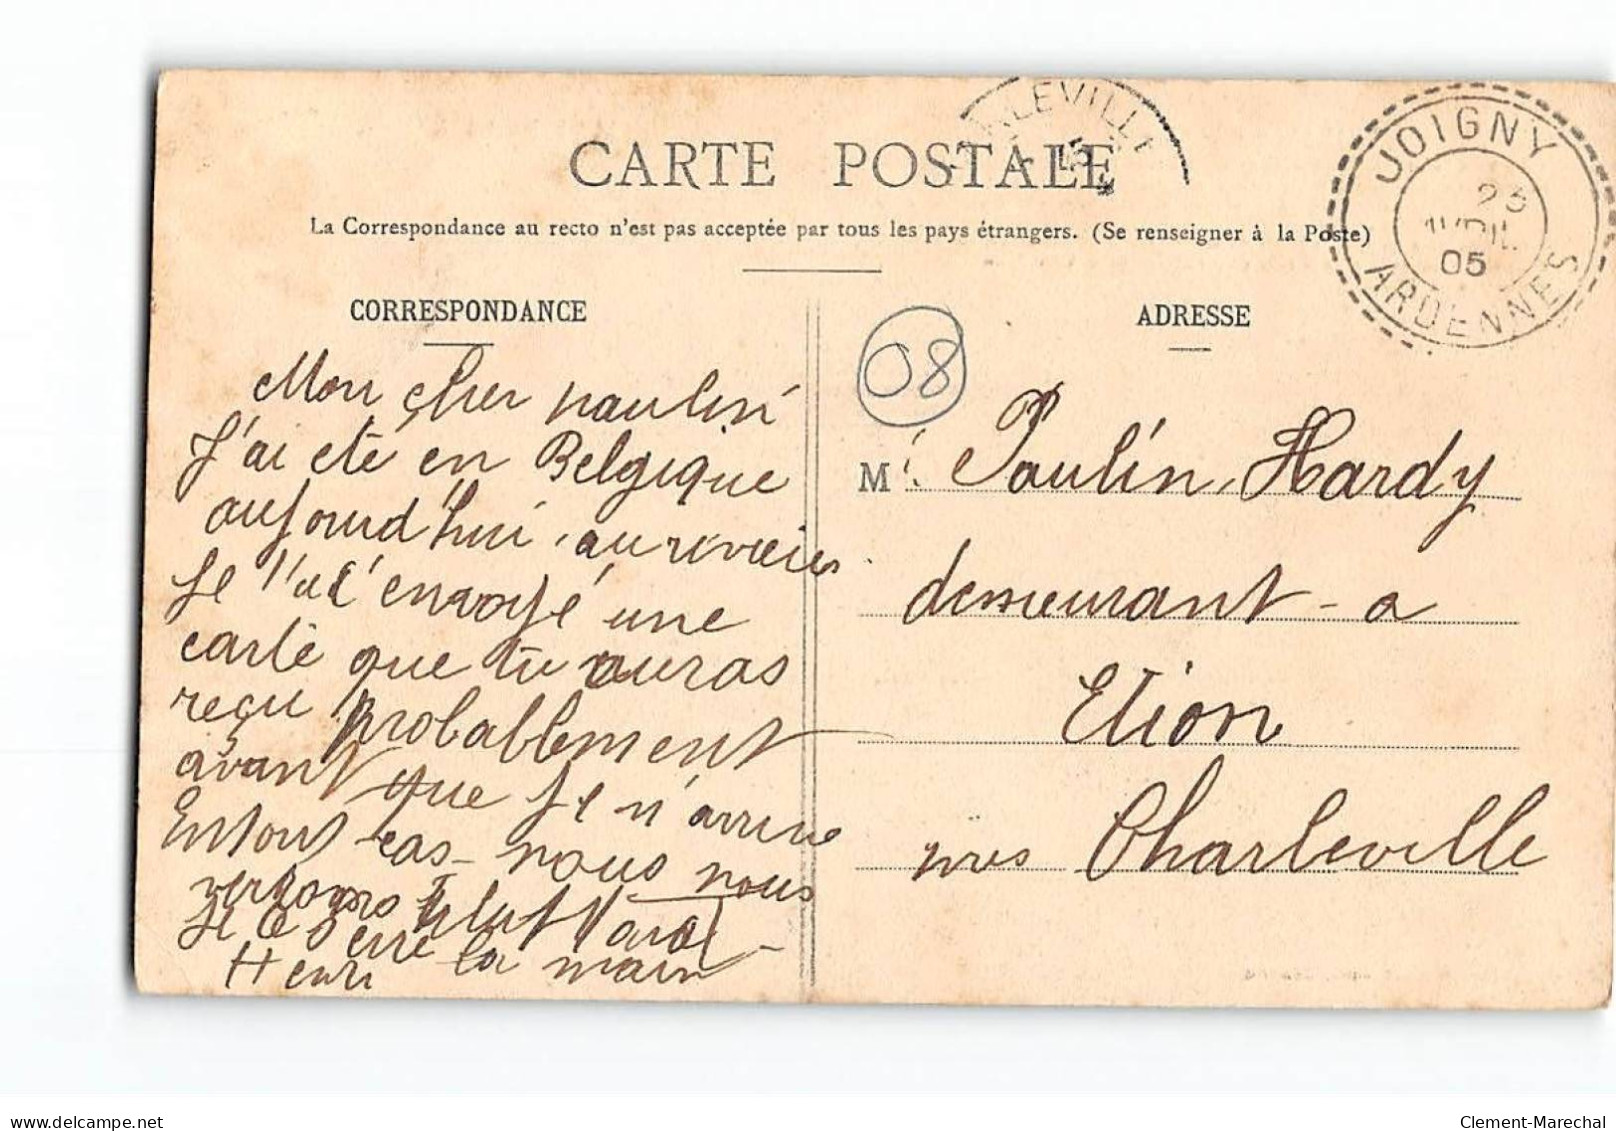 CARTE POSTALE
La Correspondance au recto n'est pas acceptée par tous les pays étrangers. (Se renseigner à la Poste)
JOIGNY
25
AVRIL
05
ARDENNES
CORRESPONDANCE
Mon cher paulin
J'ai été en Belgique
aujourd'hui, au revoir
Je t'ai envoyé une
carte que tu auras
reçu probablement
avant que je n'arrive
En tout cas nous nous
verrons plus tard
Je te serre la main
Henri
08
ADRESSE
M. Paulin Hardy
demeurant - a
Etion
près Charleville
Clement-Marechal